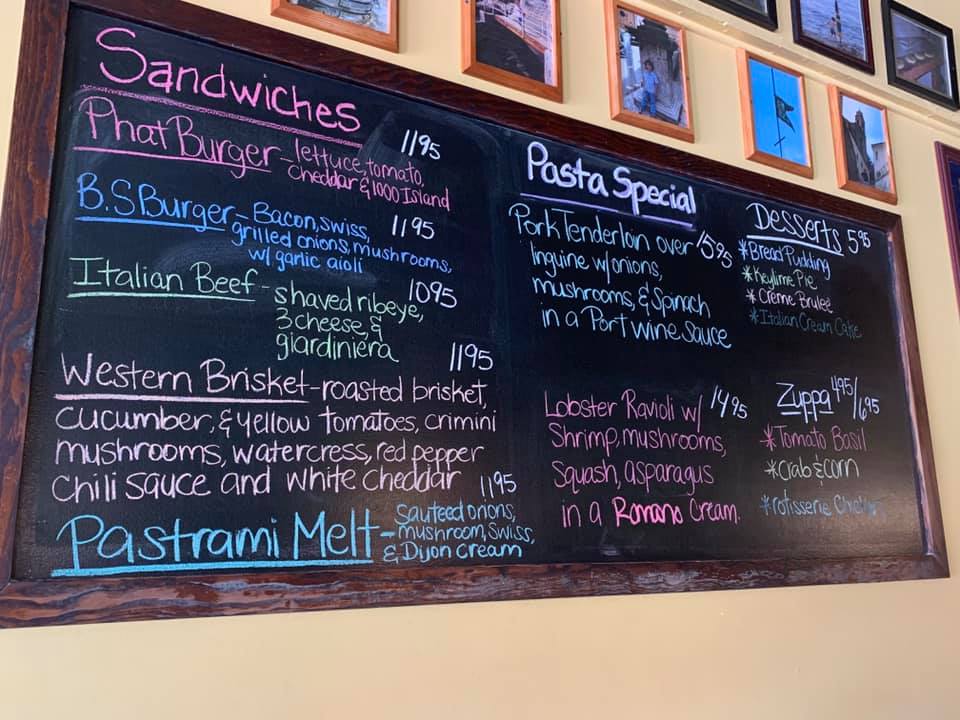 Sandwiches
Phat Burger - lettuce, tomato, 1195
cheddar & 1000 Island
B.S Burger - Bacon, swiss, 1195
grilled onions, mushrooms,
w/ garlic aioli
Italian Beef - shaved ribeye, 1095
3 cheese, &
giardiniera
1195
Western Brisket - roasted brisket,
cucumber, & yellow tomatoes, crimini
mushrooms, watercress, red pepper
chili sauce and white cheddar
1195
Pastrami Melt - sauteed onions,
mushroom, swiss,
& Dijon cream
Pasta Special
Pork Tenderloin over 1595
linguine w/ onions,
mushrooms, & Spinach
in a Port wine sauce
Lobster Ravioli w/ 1495
Shrimp, mushrooms,
Squash, asparagus
in a Romano Cream.
Desserts 595
*Bread Pudding
*Keylime Pie
*Creme Brulee
*Italian Cream Cake
Zuppa 495/695
*Tomato Basil
*Crab & corn
*rotisserie Chicken